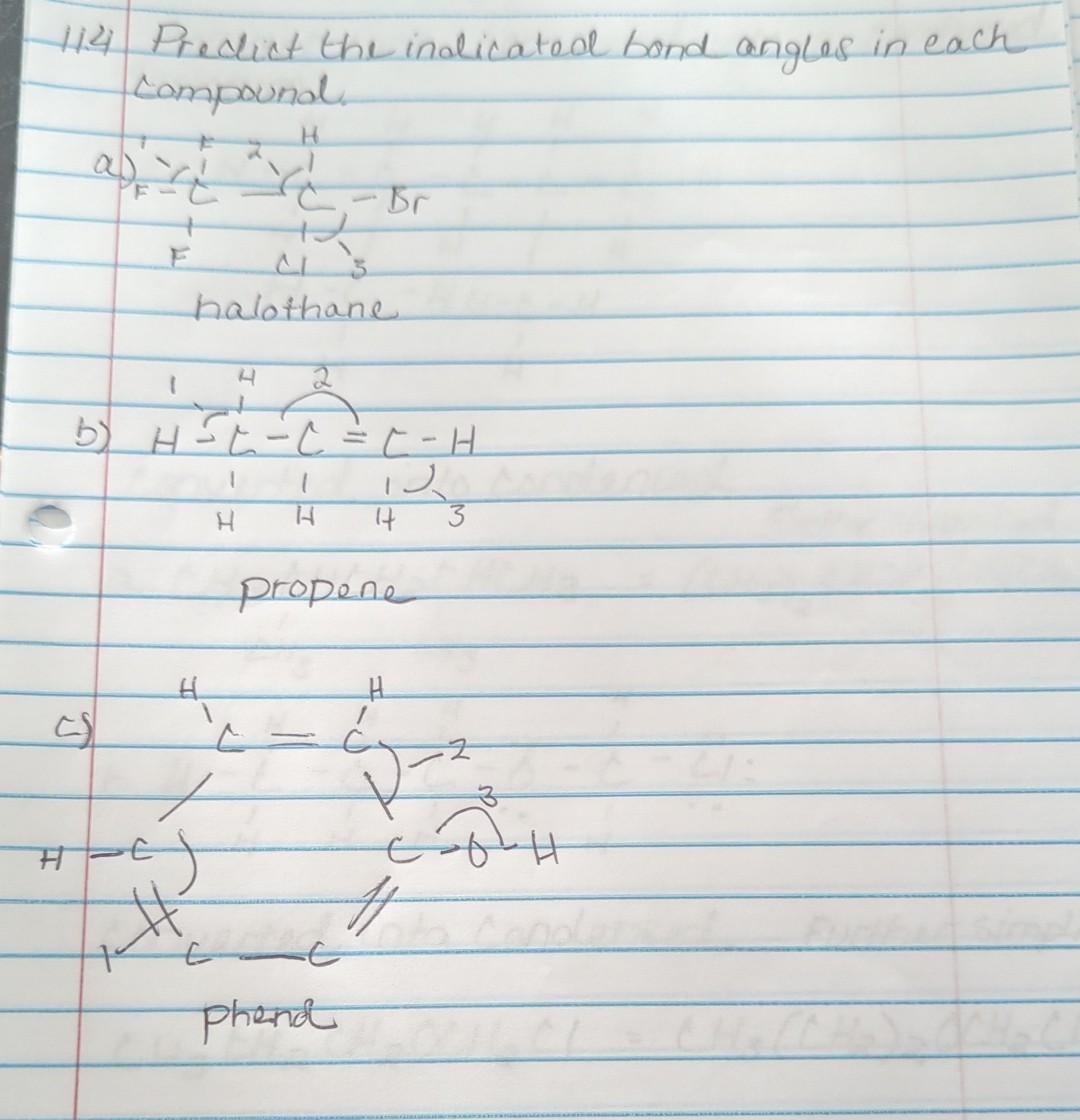 11.4 Predict the indicated bond angles in each
compound.
a) 1 F 2 H
F - C - C - Br
F Cl 3
halothane
1 H 2
b) H - C - C = C - H
H H H 3
propene
H H
c) C = C - 2
3
H - C C - O - H
1 C - C
phenol